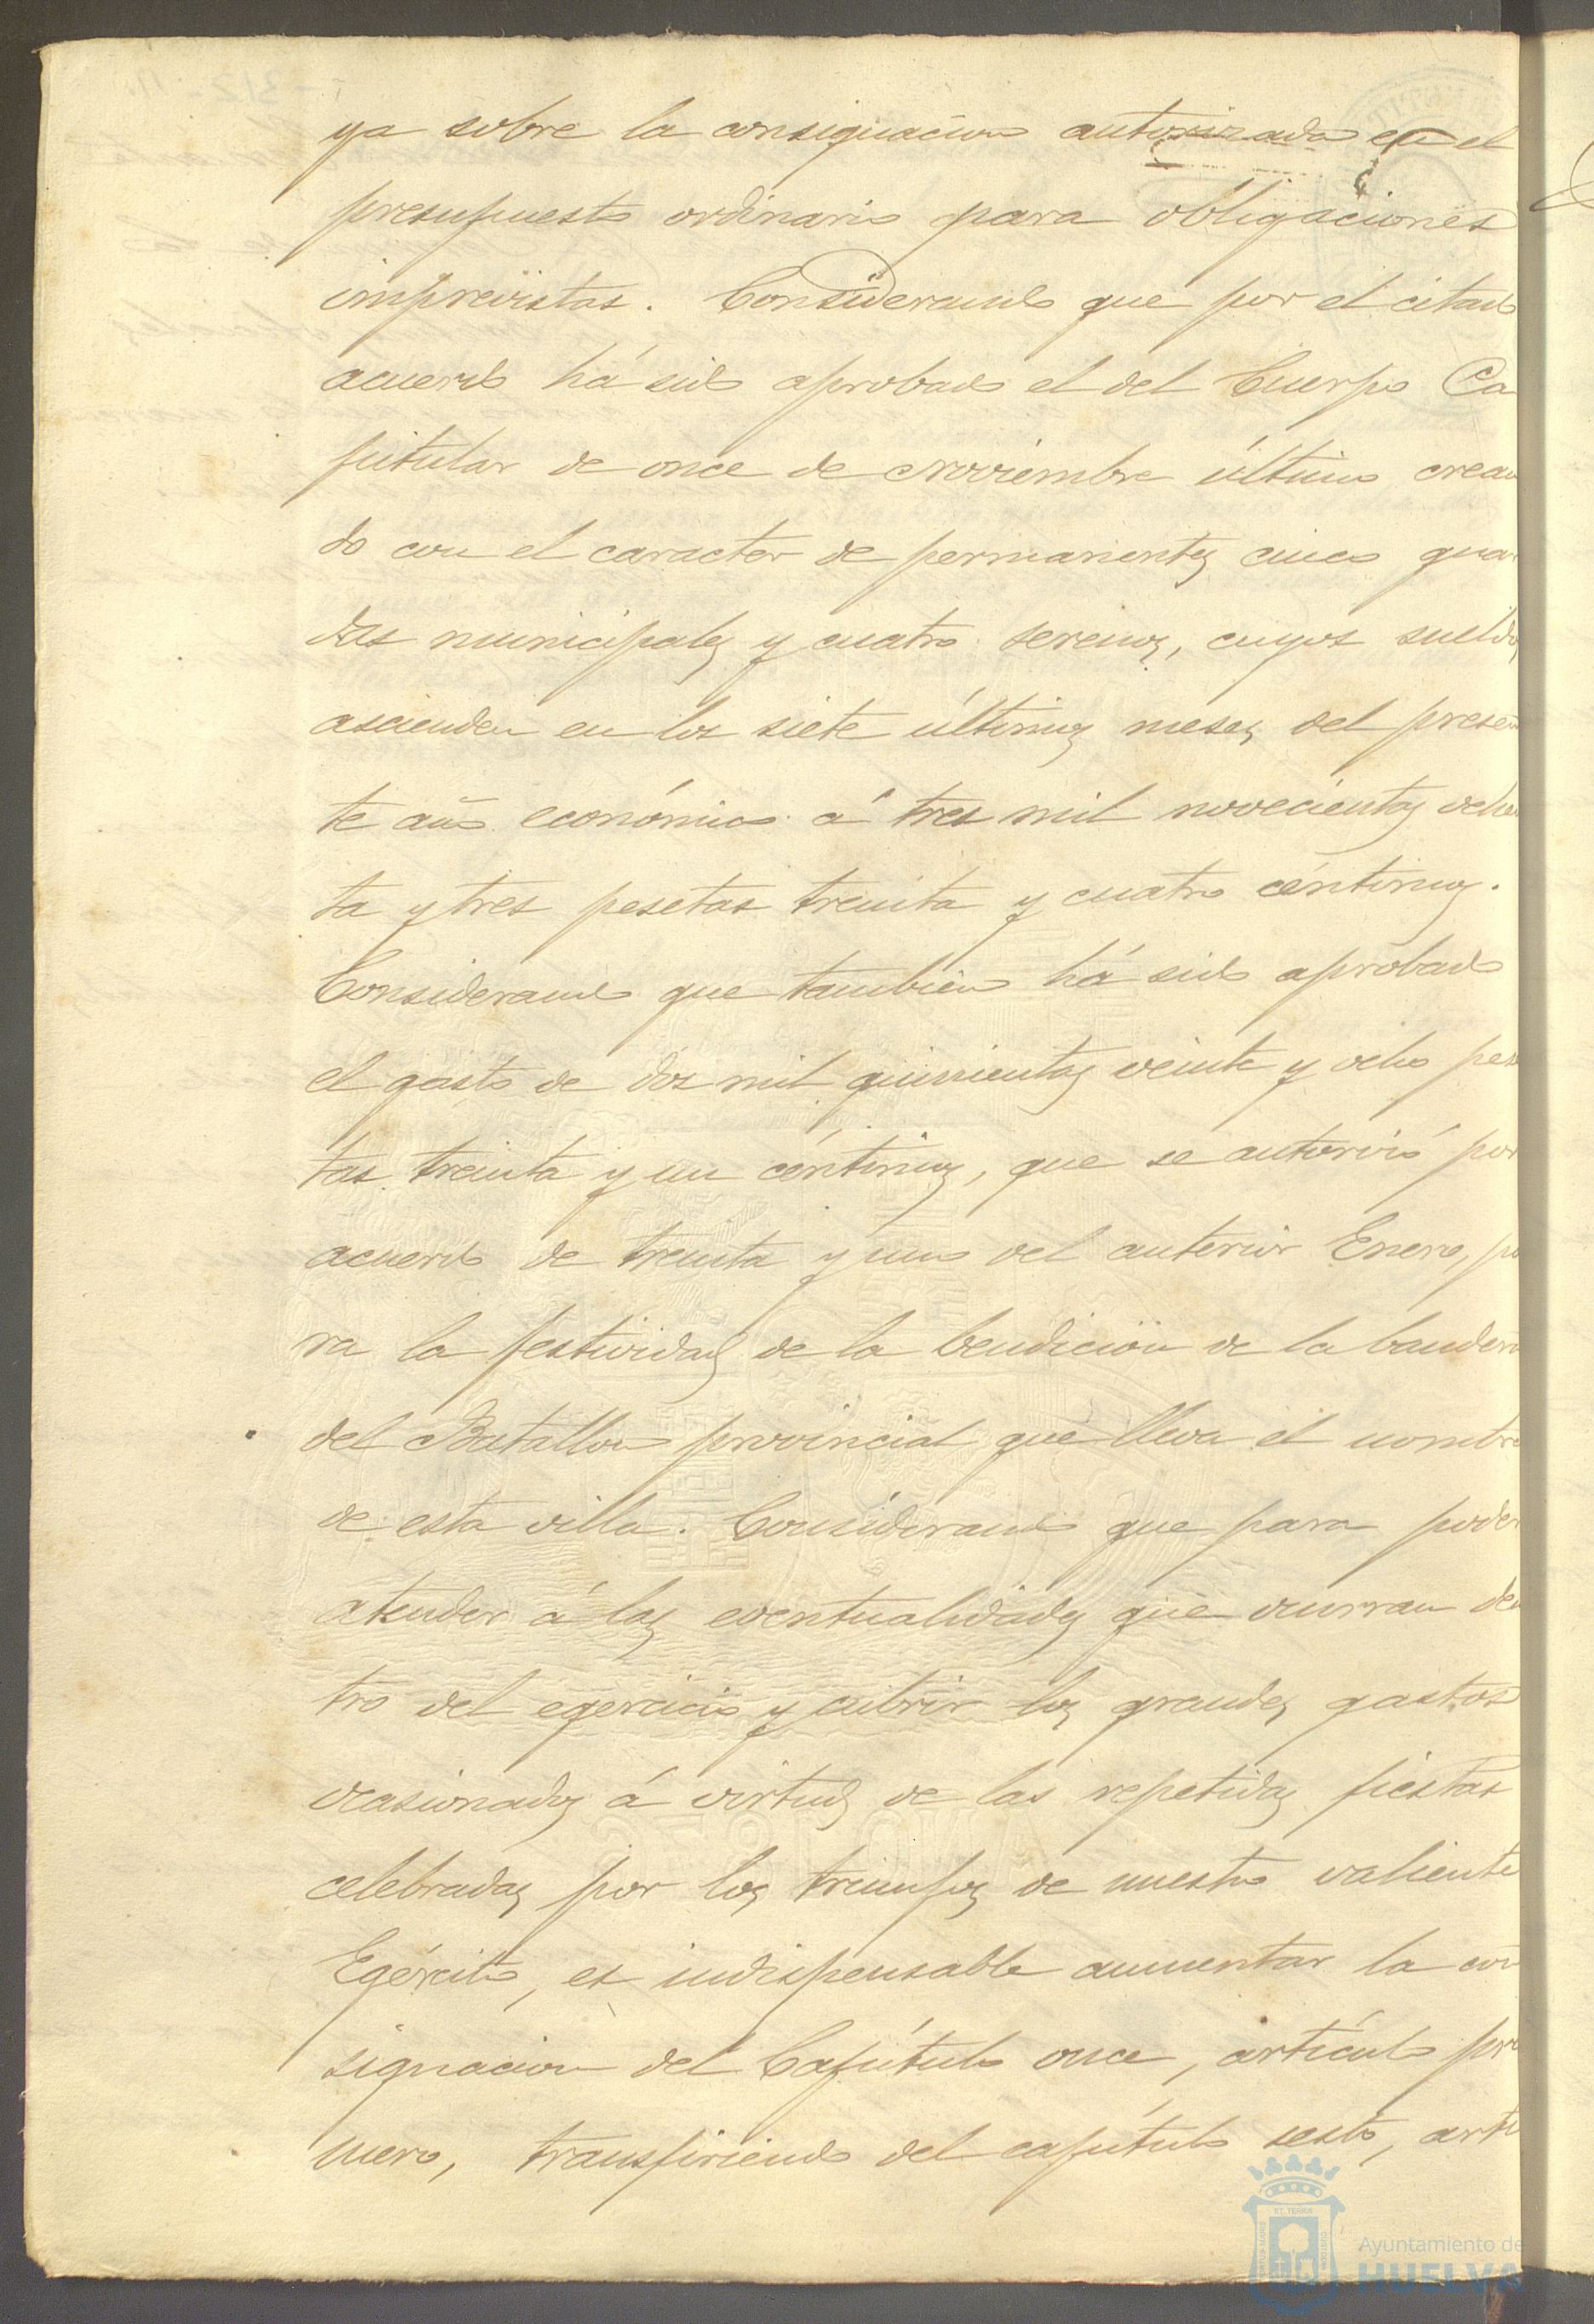 ya sobre la consignacion autorizada en el
presupuesto ordinario para obligaciones
imprevistas. Considerando que por el citado
acuerdo há sido aprobado el del Cuerpo Ca
pitular de once de Noviembre último crean
do con el caracter de permanentes cinco guar
das municipales y cuatro serenos, cuyos sueldos
ascienden en los siete últimos meses del presen
te año económico á tres mil novecientas ochen
ta y tres pesetas treinta y cuatro céntimos.
Considerando que tambien há sido aprobado
el gasto de dos mil quinientas veinte y ocho pese
tas treinta y un céntimos, que se autorizó por
acuerdo de treinta y uno del anterior Enero, pa
ra la festividad de la bendicion de la bandera
del Batallon provincial que lleva el nombre
de esta villa. Considerando que para poder
atender á las eventualidades que ocurran den
tro del egercicio y cubrir los grandes gastos
ocasionados á virtud de las repetidas fiestas
celebradas por los triunfos de nuestro valiente
Egército, es indispensable aumentar la con
signacion del Capítulo once, artículo pri
mero, transfiriendo del capítulo sesto, artí
Ayuntamiento de
HUELVA